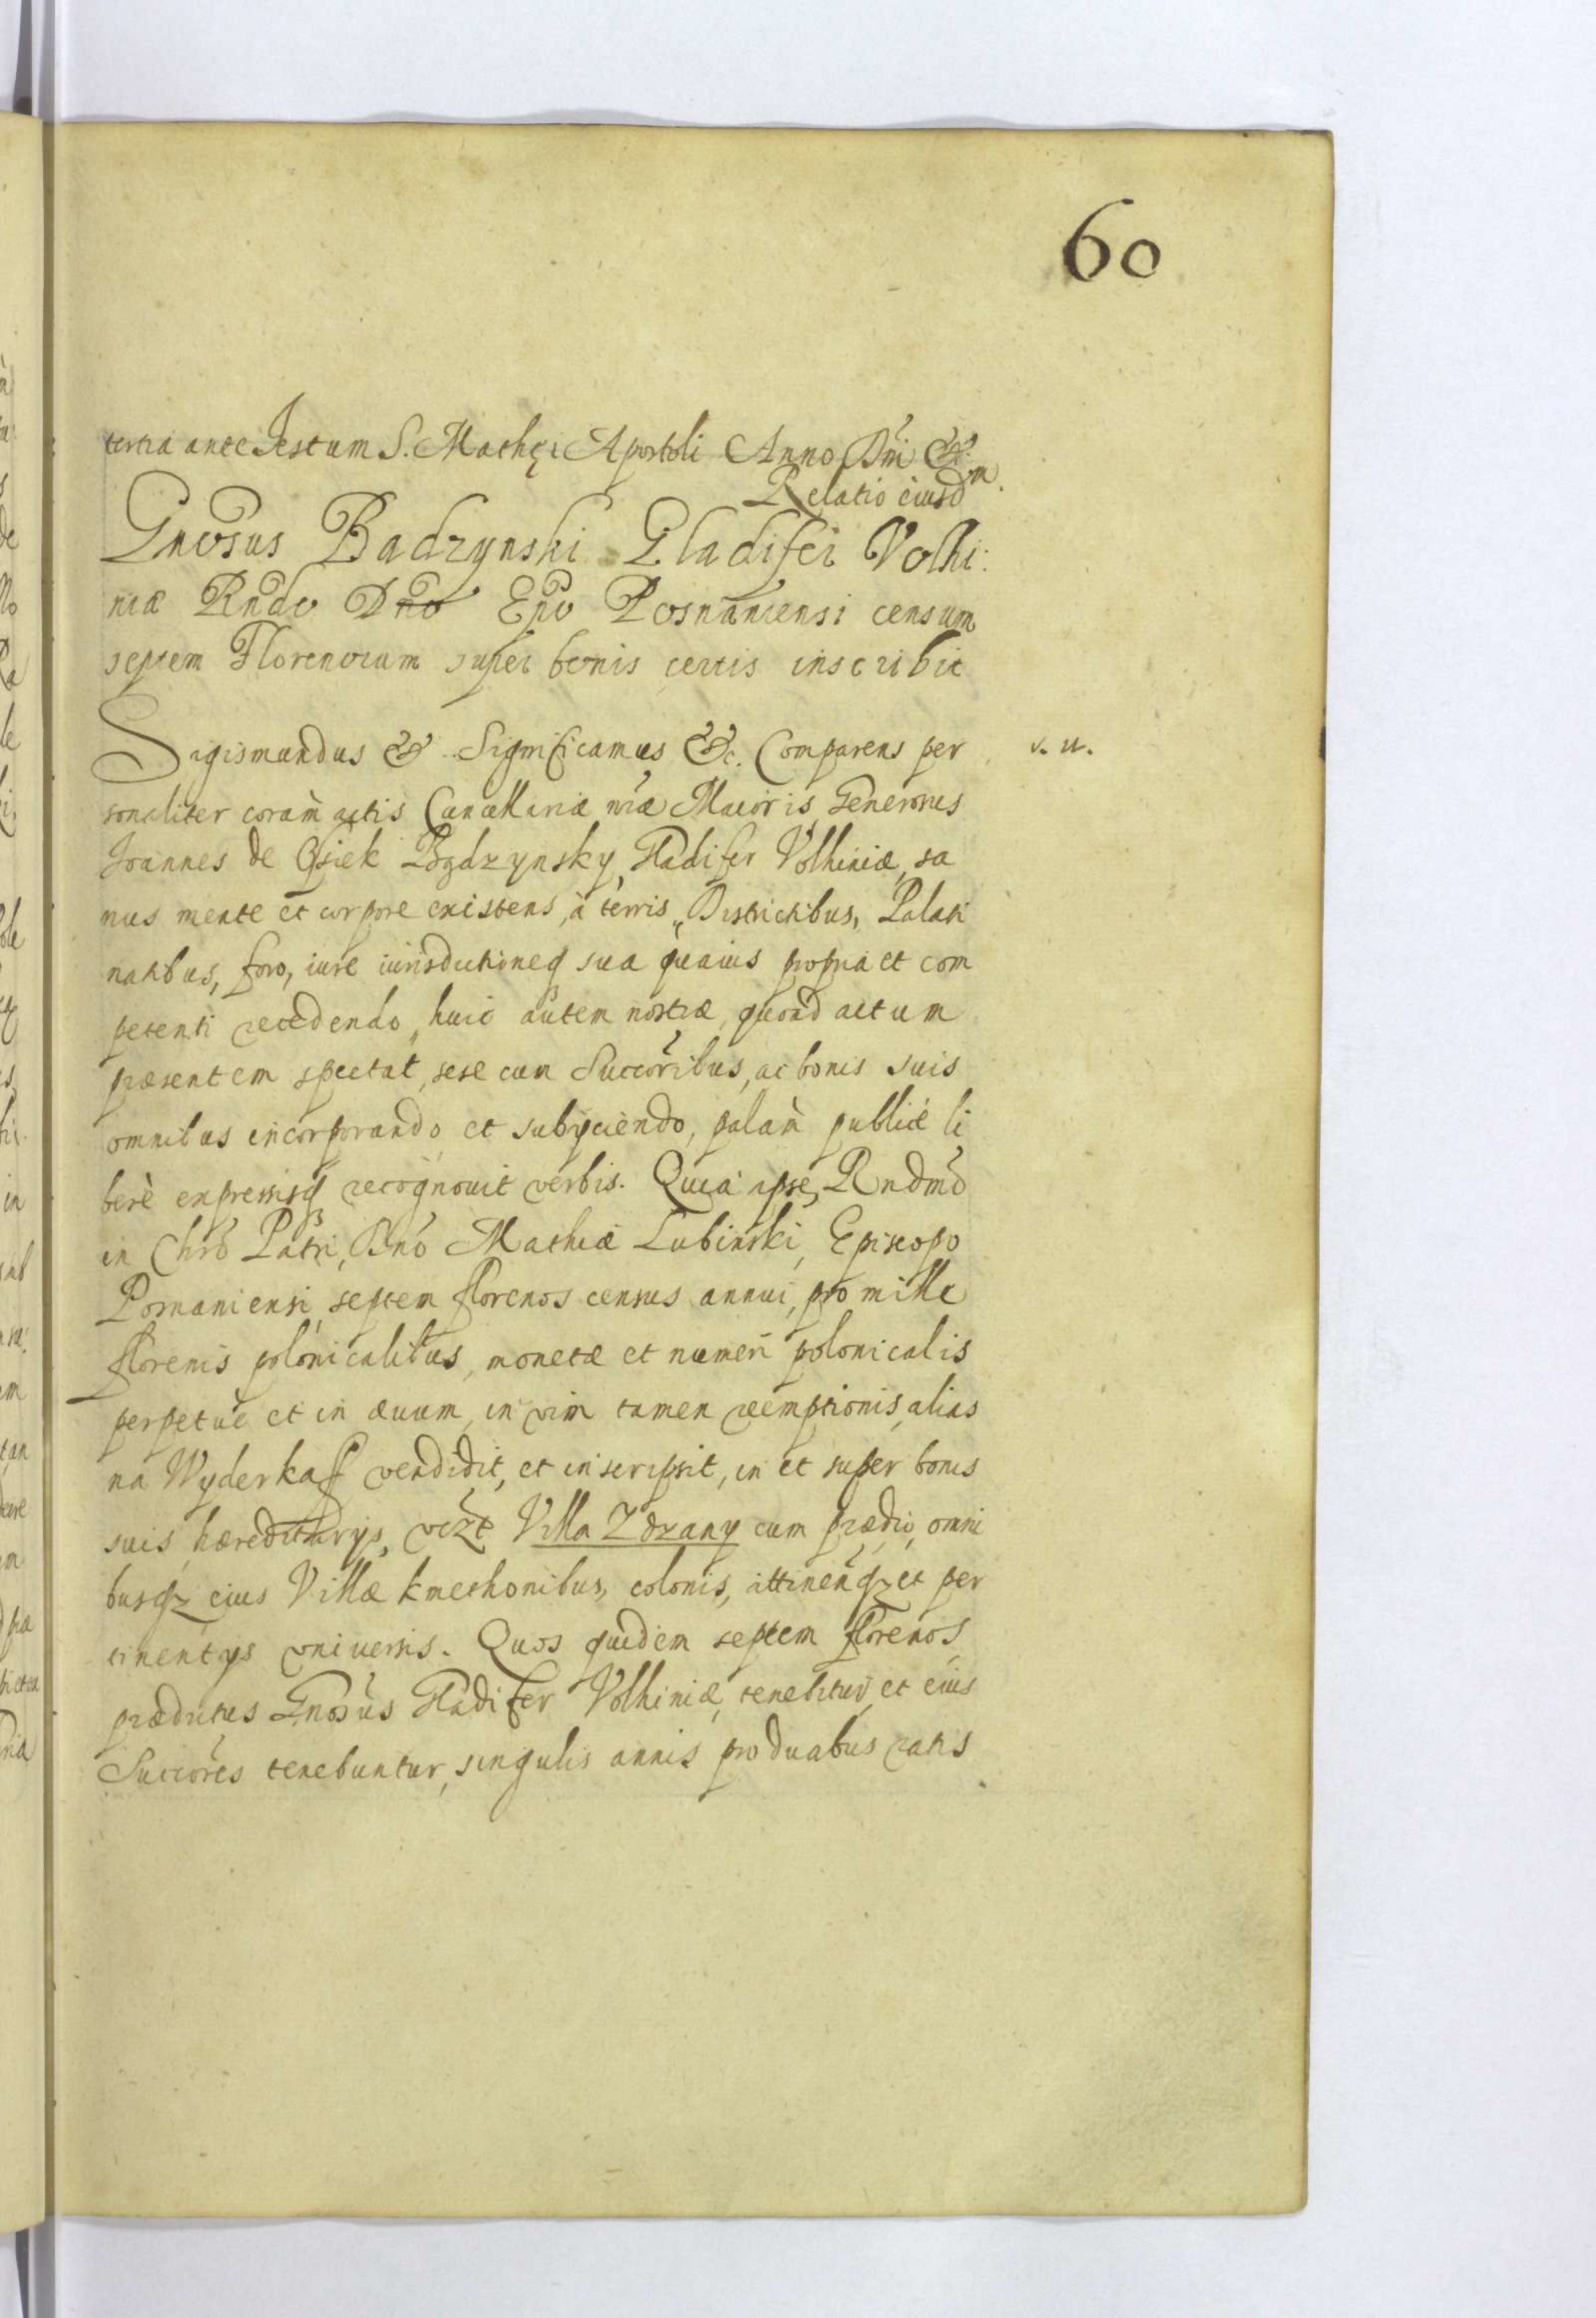 60
tertia ante Festum S. Mathęi Apostoli Anno Dni &c.
Relatio eiusdm.
Gnosus Badzynski Gladifer Volhi:
niæ Rndo Dno Epo Posnaniensi censum
septem Florenorum super bonis certis inscribit
Sigismundus & Significamus &c. Comparens per v. u.
sonaliter coram actis Cancellariæ nræ Maioris Generosus
Joannes de Osiek Bądzynsky, Gladifer Volhiniæ, sa
nus mente et corpore existens, à terris, Districtibus, Palati
natibus, foro, iure iurisdictioneq sua quauis propria et com
petenti recedendo, huic autem nostræ, quoad actum
præsentem spectat, sese cum Succoribus, ac bonis suis
omnibus incorporando et subijciendo, palàm publicè li
berè expressisq recognouit verbis. Quia ipse, Rndmo
in Chro Patri, Dno Mathiæ Lubinski, Episcopo
Posnaniensi, septem florenos census annui, pro mille
florenis polonicalibus, monetæ et numeri polonicalis
perpetuè et in æuum, in vim tamen reemptionis, alias
na Wyderkaff vendidit, et inscripsit, in et super bonis
suis hæreditarijs, vizt Villa Zdzany cum prædio, omni
busqz eius Villæ kmethonibus, colonis, attinenqz et per
tinentijs vniuersis. Quos quidem septem florenos,
prædictus Gnosus Gladifer Volhiniæ, tenebitur, et eius
Succores tenebuntur, singulis annis pro duabus ratis